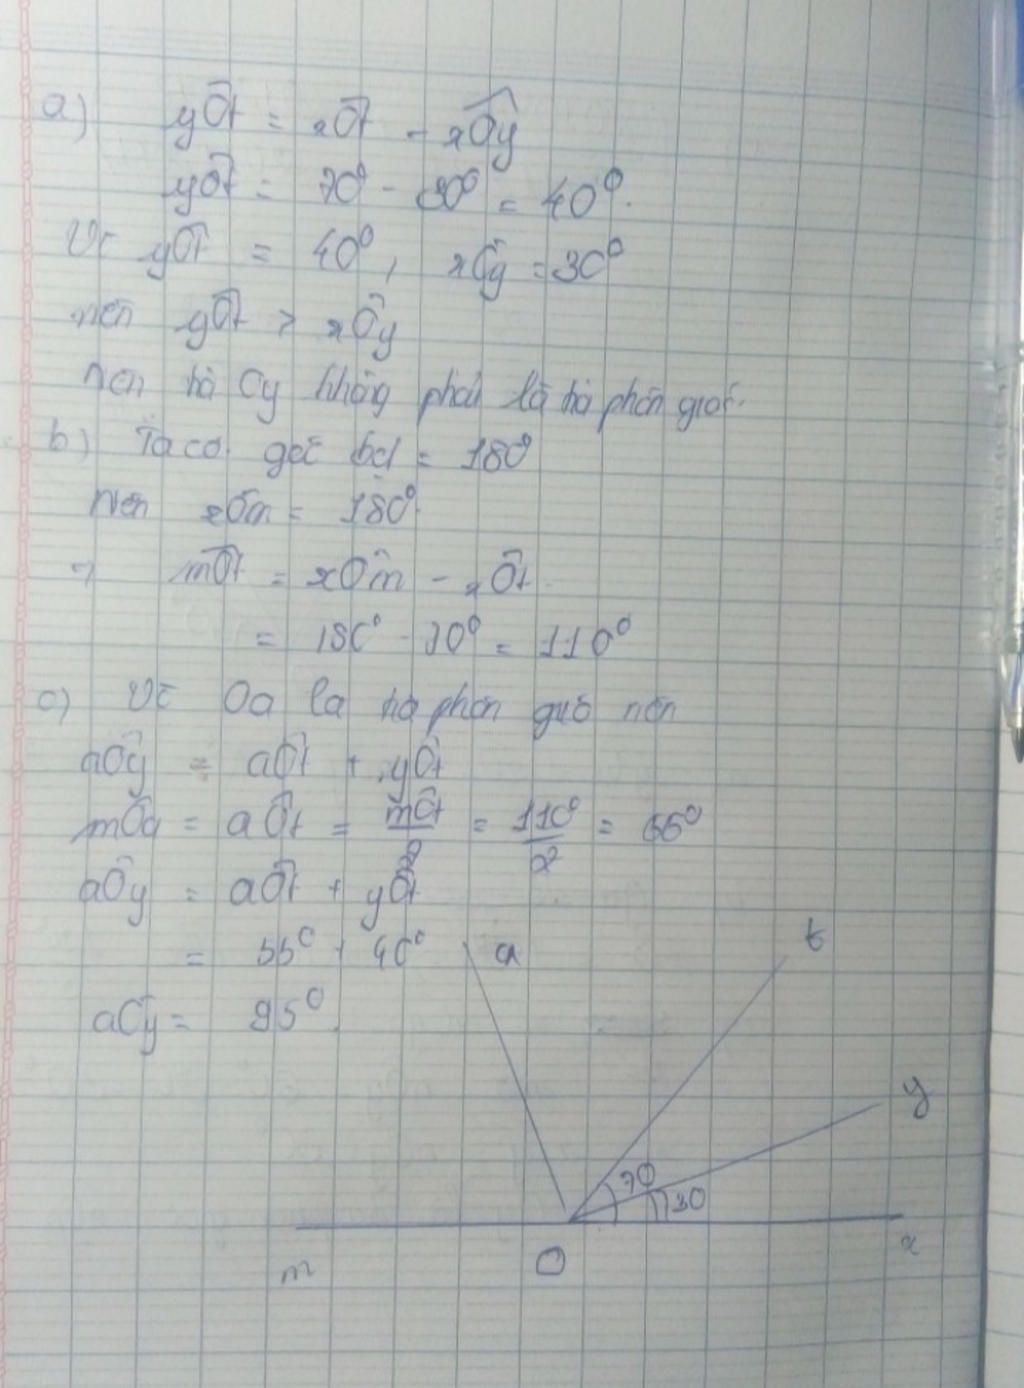 a) yÔt = xÔt - xÔy
yÔt = 70⁰ - 30⁰ = 40⁰.
Vì yÔt = 40⁰, xÔy = 30⁰
nên yÔt > xÔy
Nên tia Oy không phải là tia phân giác.
b) Ta có góc bẹt = 180⁰
Nên xÔm = 180⁰
=> mÔt = xÔm - xÔt
= 180⁰ - 70⁰ = 110⁰
c) Vì Oa là tia phân giác nên
aÔy = aÔt + yÔt
mÔa = aÔt = mÔt/2 = 110⁰/2 = 55⁰
aÔy = aÔt + yÔt
= 55⁰ + 40⁰
aÔy = 95⁰
a
t
y
70
30
m
O
x